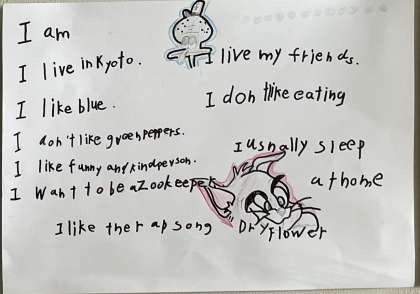 I am
I live in Kyoto.
I like blue.
I don't like green peppers.
I like funny and kind person.
I want to be a Zookeeper
I live my friends.
I don tlike eating
I usnally sleep
at home
I like the rap song Dryflower